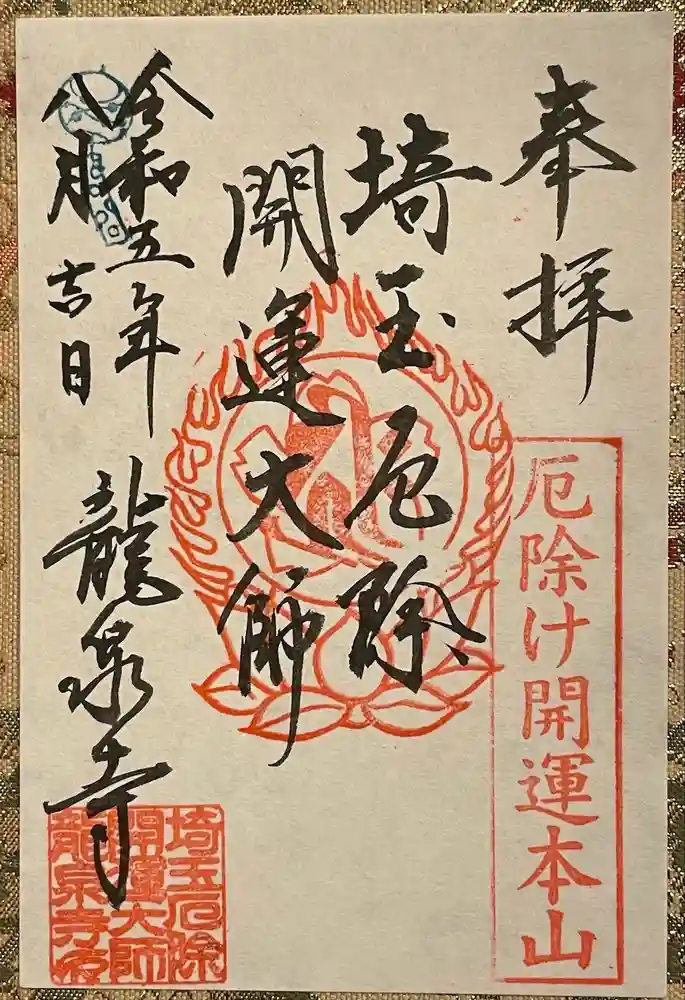 奉拝
厄除け開運本山
埼玉厄除
開運大師
令和五年
八月吉日
龍泉寺
埼玉厄除
開運大師
龍泉寺印